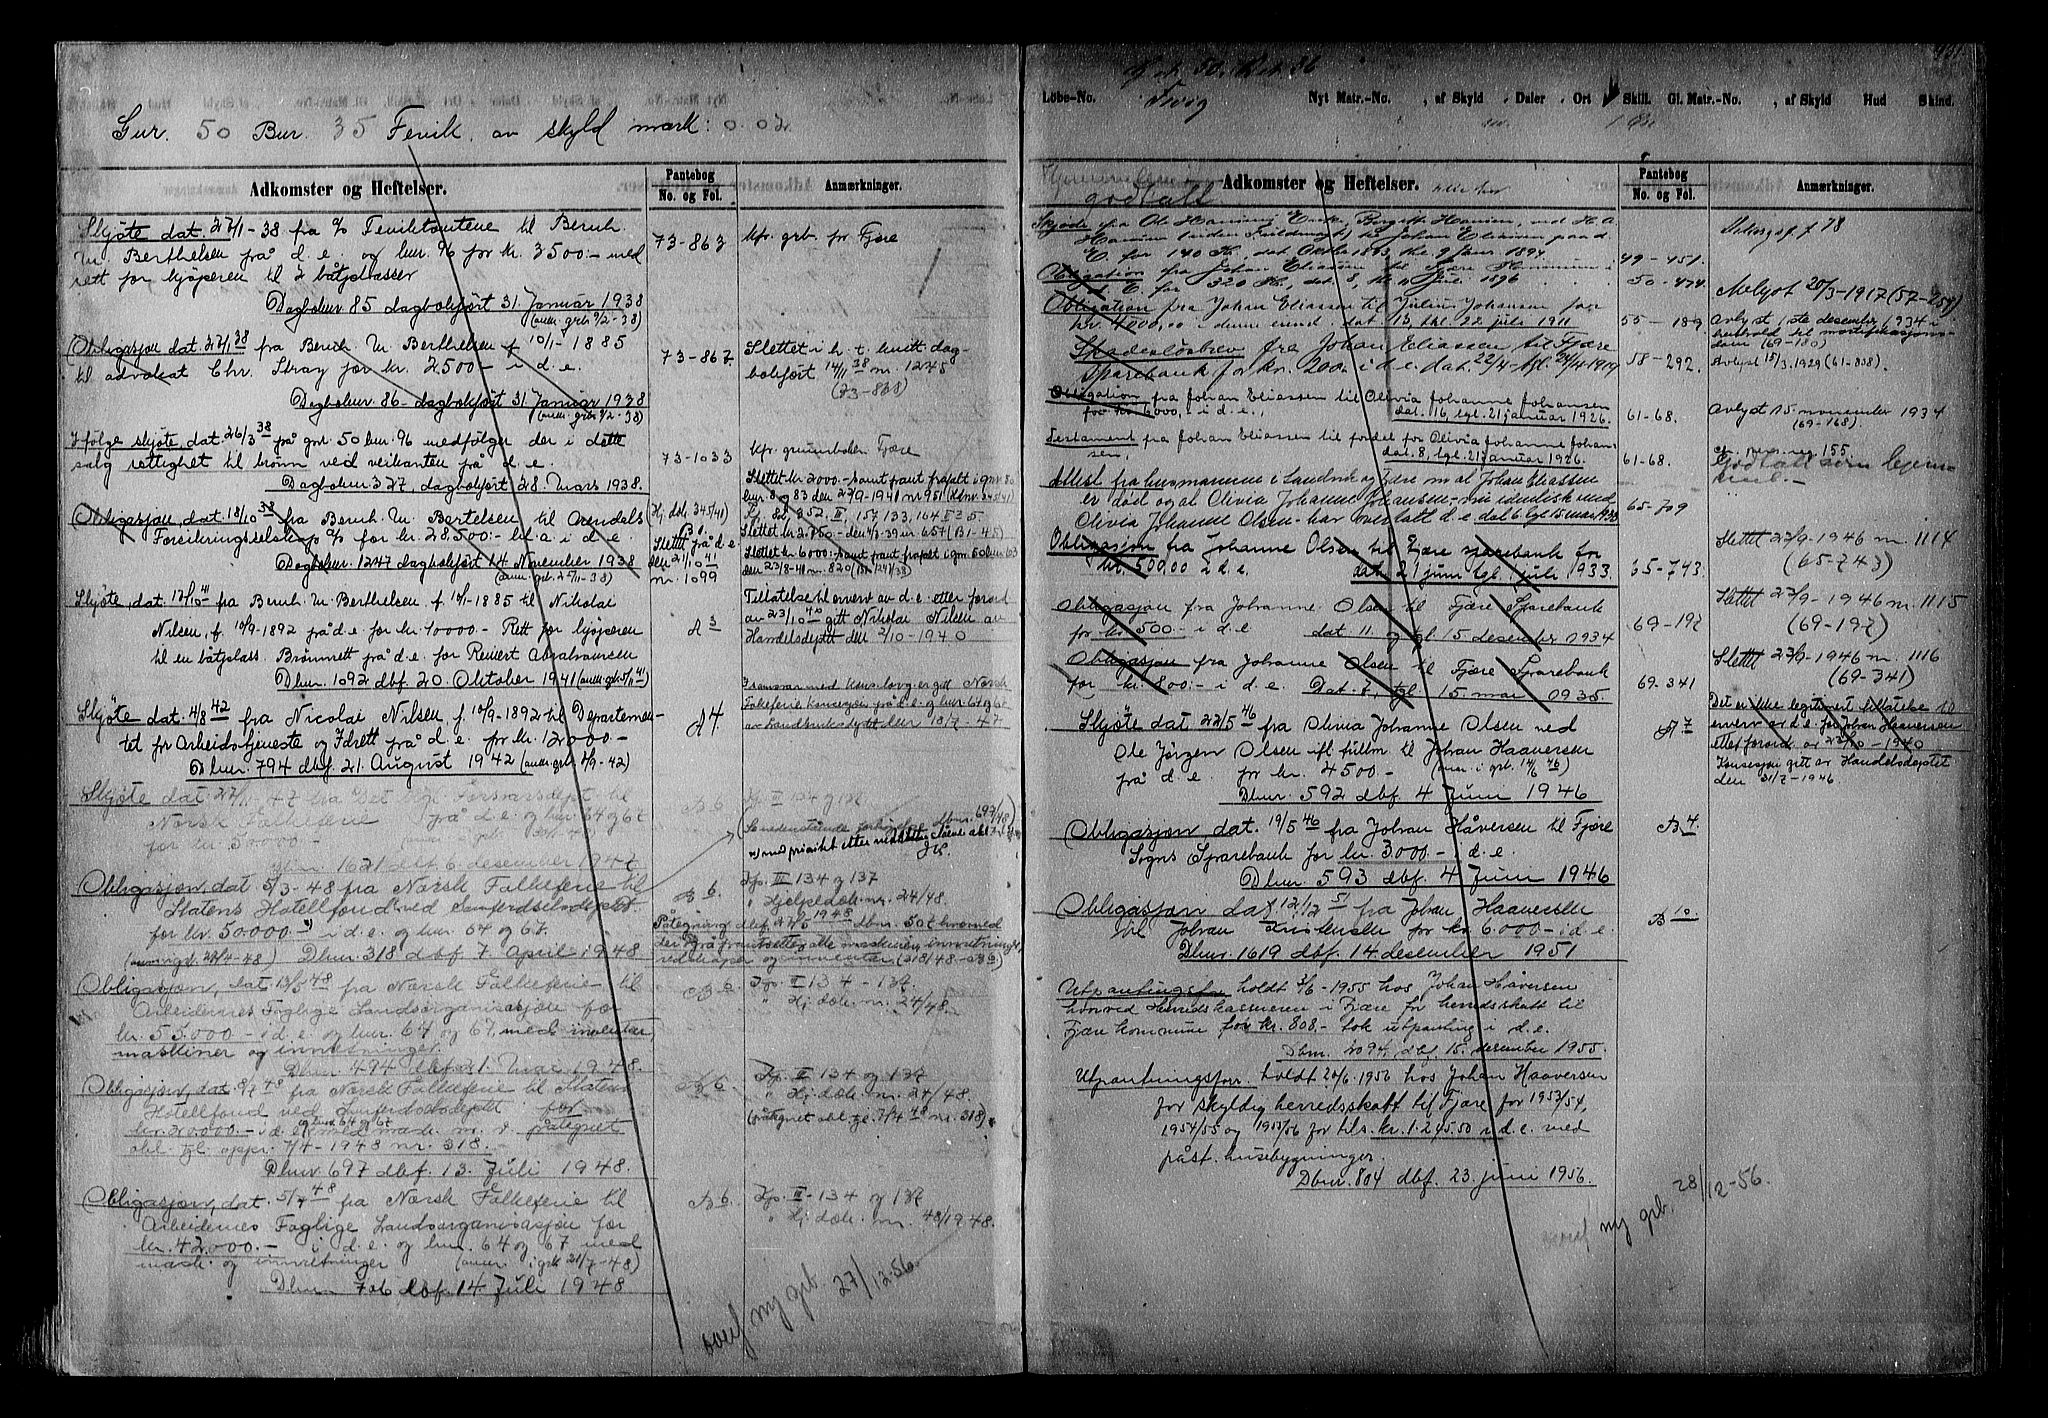 Gnr. 50 Bnr. 35 Fevik, av skyld mark: 0.02
Adkomster og Heftelser.
Pantebog
No. og Fol.
Anmærkninger.
Skjöte dat. 27/1-38 fra A/S Feviktomtene til Bernh.
M. Berthelsen frå d.e. og bnr. 96 for kr. 3500.- med
rett for kjöperen til 2 båtplasser
73-863
Mfr. grb. fr. Fjære
Dagboknr. 85 dagbokfört 31. Januar 1938
(anm. grb. 9/2-38)
Obligasjon dat. 27/1 38 fra Bernh. M. Berthelsen f. 10/1-1885
til advokat Chr. Stray for kr. 2500.- i d.e.
73-867
Slettet i h. t. kvitt. dag-
bokfört 14/11 38 nr. 1245
(73-838)
Dagboknr. 86 - dagbokfört 31. Januar 1938
(anm. grb. 9/2-38)
Ifölge skjöte, dat. 26/3 38 på gnr. 50 bnr. 96 medfölger der i dette
salg rettighet til brönn ved veikanten på d.e.
73-1033
Mfr. grunnboken Fjære
Dagboknr. 327, dagbokfört 28. Mars 1938.
Obligasjon, dat. 18/10 38 fra Bernh. M. Bertelsen til Arendals
Forsikringsselskap A/S for kr. 28500.- bl. a i d.e.
Dagboknr. 1247 dagbokfört 14 November 1938
(anm. grb. 25/11-38)
(Hj. dok. 345/41)
Slettet frå d.e.
den 21/10 41
nr. 1099
Slettet kr. 2000.- samt pant frafalt i gnr. 50
bnr. 8 og 83 den 27/9-1941 nr. 951
Slettet kr. 2.850.- den 4/3-39 nr. 657 (B1-45)
Slettet kr. 6000.- samt pant frafalt i gnr. 50 bnr. 103
den 23/8-41 nr. 820
Skjöte, dat. 17/10 41 fra Bernh. M. Berthelsen f. 10/1-1885 til Nikolai
Nilsen, f. 10/9-1892 frå d.e. for kr. 10000.- Rett for kjöperen
til en båtplass. Brönnrett frå d.e. for Reinert Abrahamsen
A 3
Tillatelse til ervert av d.e. etter forord
av 23/10 40 gitt Nikolai Nilsen av
Handelsdeptt den 2/10-1940
Dbnr. 1092 dbf. 20 Oktober 1941 (anm. grb. 5/11 41)
Skjöte dat. 4/8 42 fra Nicolai Nilsen f. 10/9-1892 til Departemen-
tet for Arbeidstjeneste og Idrett frå d.e. for kr. 12000.-
A 4.
I samsvar med kons.lovg. er gitt Norsk
Folkeferie konsesjon på d.e. og bnr 64 og 67
av Landbruksdeptt den 18/7-47
Dbnr. 794 dbf. 21. August 1942 (anm. grb. 2/9-42)
Skjöte dat. 27/11-47 fra Det Kgl. Forsvarsdept. til
Norsk Folkeferie frå d.e. og bnr 64 og 67
for kr. 50000.-
Dbnr. 1621 dbf 6. desember 1947
Obligasjon, dat. 5/3-48 fra Norsk Folkeferie til
Statens Hotellfond ved Samferdselsdeptet
for kr. 50.000.- i d.e. og bnr 64 og 67.
Dbnr. 318 dbf. 7 April 1948
B 6.
Kp. II 134 og 137
" Hjelpedok. nr. 24/48.
Påtegning dbf. 27/5 1948 dbnr. 507 hvorved
redskaper og inventar (318/48-
Obligasjon, dat. 13/5-48 fra Norsk Folkeferie til
Arbeidernes Faglige Landsorganisasjon for
kr. 55.000.- i d.e og bnr. 64 og 67, med inventar,
maskiner og innretninger.
Dbnr. 494 dbf 21. Mai 1948.
B 6
Kp. II 134 - 137.
" Hj. dok. nr. 24/48.
Obligasjon, dat. 8/7 48 fra Norsk Folkeferie til Statens
Hotellfond ved Samferdselsdeptt for
kr. 20000.- i d.e.
obl. tgl. oppr. 7/4-1948 nr. 318.-
B 6.
Kp. II 134 og 137
" Hj. dok. nr. 24/48
(påtegnet obl. tgl. 7/4 48 nr. 318).
Dbnr. 697 dbf. 13. Juli 1948.
Obligasjon, dat. 5/7 48 fra Norsk Folkeferie til
Arbeidernes Faglige Landsorganisasjon for
kr. 42000.- i d.e. og bnr. 64 og 67 med
mask. og innretninger (anm. i grb. 21/7-48)
Dbnr. 706 dbf. 14 Juli 1948
B 6.
Kp. II - 134 og 137
" Hj. dok. nr. 48/1948.
overf. ny grb. 27/12-56.
Gnr. 50. Bnr. 36
Löbe-No. Fevig Nyt Matr.-No. , af Skyld Daler Ort Skill. Gl. Matr.-No. , af Skyld Hud Skind.
Adkomster og Heftelser.
godtatt
Pantebog
No. og Fol.
Anmærkninger.
Skjøde fra Ole Hansens Enke, Borgete Hansen, ved H. A.
Hansen til Johan Eliassen paa d.
E. for 140 Kr.
49-451.
Obligation fra Johan Eliassen til Fjære Kommune i
d. E. for 320 Kr., dat. 8, tgl. Juli 1896
50-474.
Avlyst 20/3-1917 (57-254)
Obligation fra Johan Eliassen til Julius Johansen for
kr. 4000,00 i denne eiend. dat. 13, tgl. 22 juli 1911
55-189.
Avlyst 1ste desember 1934
henhold til mortifikasjons-
dom (69-180)
Skadesløsbrev fra Johan Eliassen til Fjære
Sparebank for kr. 200. i d.e. dat. 22/4-tgl. 24/4-1919
58-292.
Avlyst 15/3.1929 (61-838).
Obligation fra Johan Eliassen til Olivia Johanne Johansen
for kr. 6000,- i d.e., dat. 16, tgl. 21 januar 1926.
61-68.
Avlyst 15 november 1934
(69-168).
Testament fra Johan Eliassen til fordel for Olivia Johanne Johan-
sen, dat. 8, tgl. 21 januar 1926.
61-68.
Godtatt som hjem-
mel.-
Attest fra lensmannen i Landvik og Fjære om at Johan Eliassen
er død og at Olivia Johanne Johansen - nu identisk med
Olivia Johanne Olsen - har overtatt d.e. dat. 6 tgl. 15 mai 1930
65-709
Obligasjon fra Johanne Olsen til Fjære sparebank for
kr. 500.00 i d.e. dat. 21 juni tgl. 1 juli 1933.
65-743.
Slettet 27/9-1946 nr. 1114
(65-743)
Obligasjon fra Johanne Olsen til Fjære Sparebank
for kr. 500.- i d.e dat. 11. og tgl. 15 desember 1934
69-197
Slettet 27/9-1946 nr. 1115
(69-197)
Obligasjon fra Johanne Olsen til Fjære Sparebank
for kr. 800.- i d.e. Dat. 7, tgl. 15 mai 1935
69-341
Slettet 27/9-1946 nr. 1116
(69-341)
Skjöte dat 22/5 46 fra Olivia Johanne Olsen ved
Ole Jörgen Olsen ifl. fullm. til Johan Haaversen
frå d.e for kr. 4500.- (anm. i grb. 14/6 46)
A 7
Det er ikke legitimert tillatelse til
erverv av d.e. for Johan Haaversen
etter forord. av 23/10-1940
Konsesjon gitt av Handelsdeptet
den 31/7-1946
Dbnr. 592 dbf. 4 Juni 1946
Obligasjon dat. 19/5 46 fra Johan Håversen til Fjære
Sogns Sparebank for kr. 3000.- i d.e.
B 4.
Dbnr. 593 dbf. 4 Juni 1946
Obligasjon dat 12/12 51 fra Johan Haaversen
til Johan Kristensen for kr 6000.- i d.e.
B 10
Dbnr. 1619 dbf. 14. desember 1951
Utpantingsforr. holdt 7/6-1955 hos Johan Håversen
hvorved Herredskassereren i Fjære for herredsskatt til
Fjære kommune for kr. 808.- tok utpanting i d.e.
Dbnr. 2094, dbf. 15. desember 1955.
Utpantningsforr. holdt 20/6 1956 hos Johan Haaversen
for skyldig herredsskatt til Fjære for 1953/54,
1954/55 og 1955/56 for tils. kr. 1.245.50 i d.e. med
påst. husebygninger.
Dbnr. 804 dbf. 23. juni 1956.
overf. ny grb. 28/12-56.